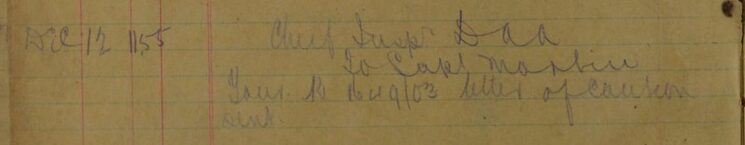 DEC 12 1155 Chief Inspr Daa
To Capt Martin
Your B 1649/03 letter of caution
sent.